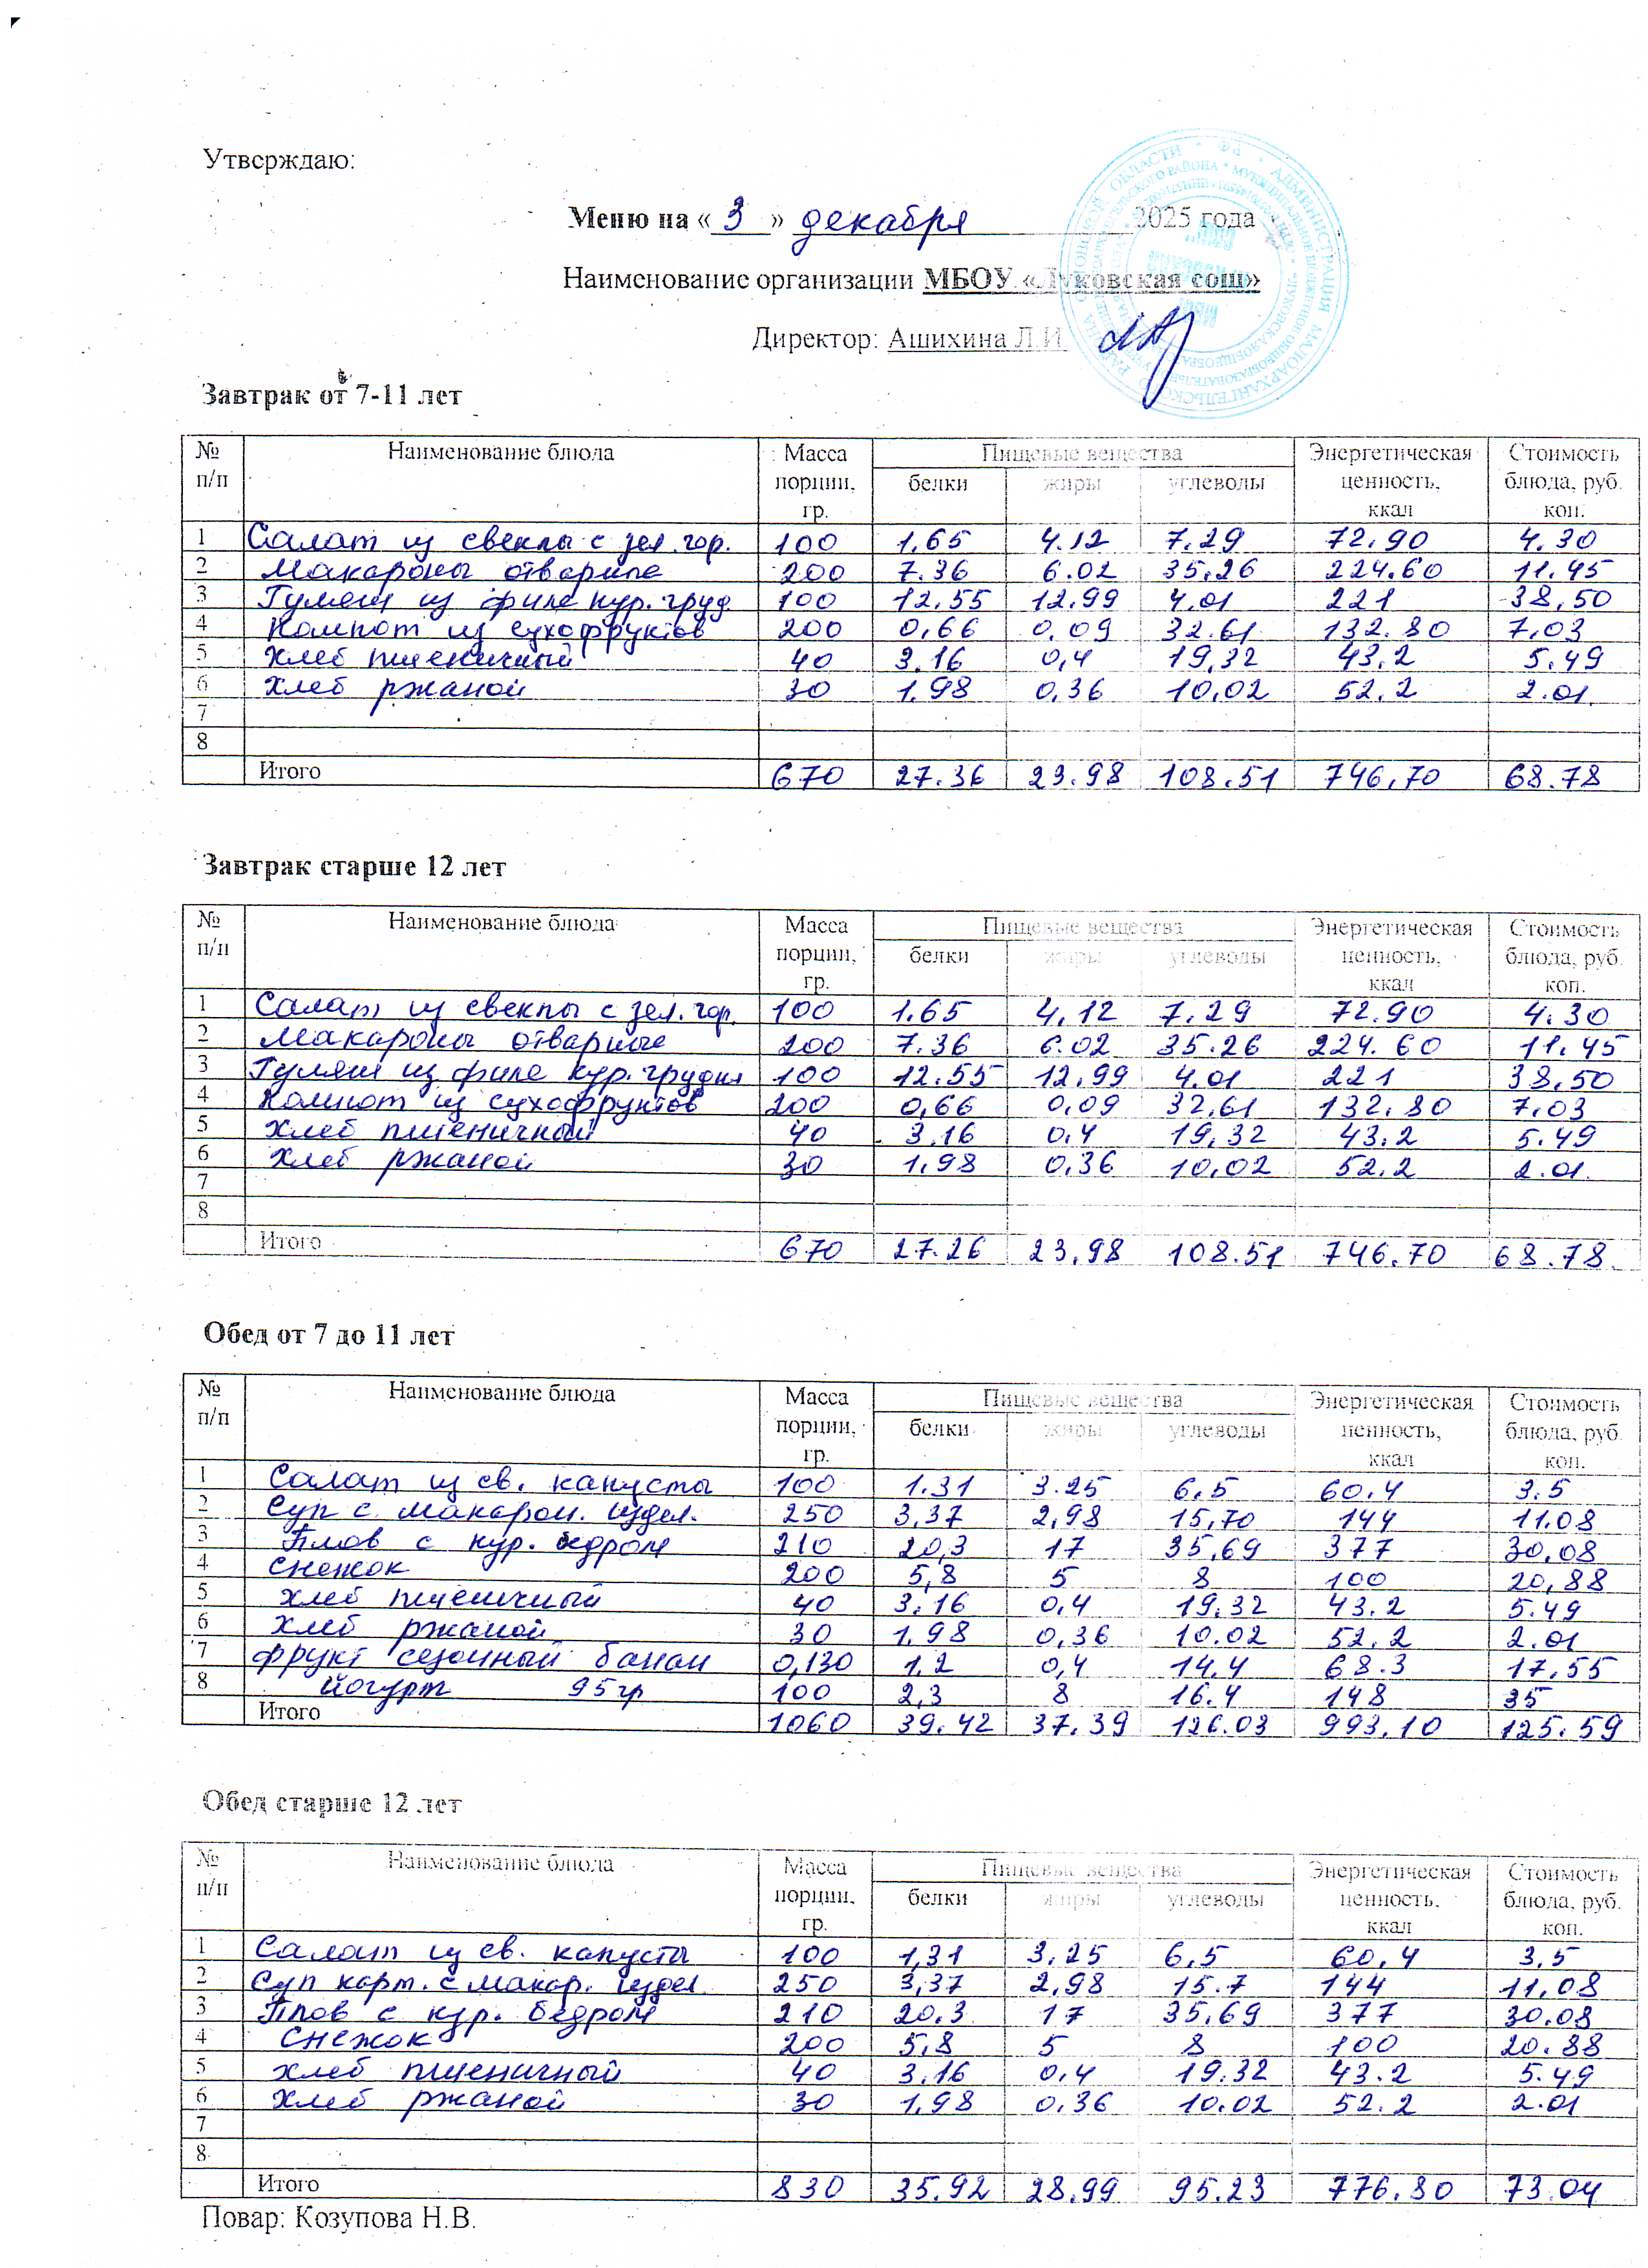 Утверждаю:
Меню на « 3 » декабря 2025 года
Наименование организации МБОУ «Луковская сош»
Директор: Ашихина Л.И.
Завтрак от 7-11 лет
№ п/п Наименование блюда Масса порции, гр. Пищевые вещества Энергетическая ценность, ккал Стоимость блюда, руб. коп.
белки жиры углеводы
1 Салат из свеклы с зел. гор. 100 1,65 4.12 7,29 72,90 4.30
2 Макароны отварные 200 7.36 6.02 35,26 224.60 11.45
3 Гуляш из филе кур. груд. 100 12,55 12,99 4,01 221 38,50
4 Компот из сухофруктов 200 0,66 0,09 32.61 132.80 7,03
5 Хлеб пшеничный 40 3.16 0,4 19,32 43,2 5.49
6 Хлеб ржаной 30 1,98 0,36 10,02 52,2 2.01
7
8
Итого 670 27.36 23.98 108.51 746,70 68.78
Завтрак старше 12 лет
№ п/п Наименование блюда Масса порции, гр. Пищевые вещества Энергетическая ценность, ккал Стоимость блюда, руб. коп.
белки жиры углеводы
1 Салат из свеклы с зел. гор. 100 1.65 4,12 7,29 72.90 4.30
2 Макароны отварные 200 7.36 6.02 35.26 224.60 11.45
3 Гуляш из филе кур. грудки 100 12.55 12,99 4.01 221 38,50
4 Компот из сухофруктов 200 0,66 0,09 32,61 132.80 7.03
5 Хлеб пшеничный 40 3.16 0,4 19,32 43.2 5.49
6 Хлеб ржаной 30 1,98 0,36 10,02 52.2 2.01
7
8
Итого 670 27.26 23,98 108.51 746.70 68.78
Обед от 7 до 11 лет
№ п/п Наименование блюда Масса порции, гр. Пищевые вещества Энергетическая ценность, ккал Стоимость блюда, руб. коп.
белки жиры углеводы
1 Салат из св. капусты 100 1.31 3.25 6,5 60,4 3.5
2 Суп с макарон. издел. 250 3,37 2,98 15,70 144 11.08
3 Плов с кур. бедром 210 20,3 17 35,69 377 30,08
4 Снежок 200 5,8 5 8 100 20,88
5 Хлеб пшеничный 40 3.16 0,4 19.32 43.2 5.49
6 Хлеб ржаной 30 1,98 0,36 10.02 52,2 2.01
7 фрукт сезонный банан 0,130 1,2 0,4 14,4 68.3 17,55
8 йогурт 95гр 100 2,3 8 16.4 148 35
Итого 1060 39.42 37.39 126.03 993,10 125.59
Обед старше 12 лет
№ п/п Наименование блюда Масса порции, гр. Пищевые вещества Энергетическая ценность, ккал Стоимость блюда, руб. коп.
белки жиры углеводы
1 Салат из св. капусты 100 1,31 3,25 6,5 60,4 3,5
2 Суп карт. с макар. издел 250 3,37 2,98 15.7 144 11,08
3 Плов с кур. бедром 210 20.3 17 35,69 377 30.08
4 Снежок 200 5,8 5 8 100 20.88
5 хлеб пшеничный 40 3.16 0,4 19.32 43.2 5.49
6 Хлеб ржаной 30 1,98 0,36 10.02 52.2 2.01
7
8
Итого 830 35.92 28,99 95.23 776,80 73.04
Повар: Козупова Н.В.